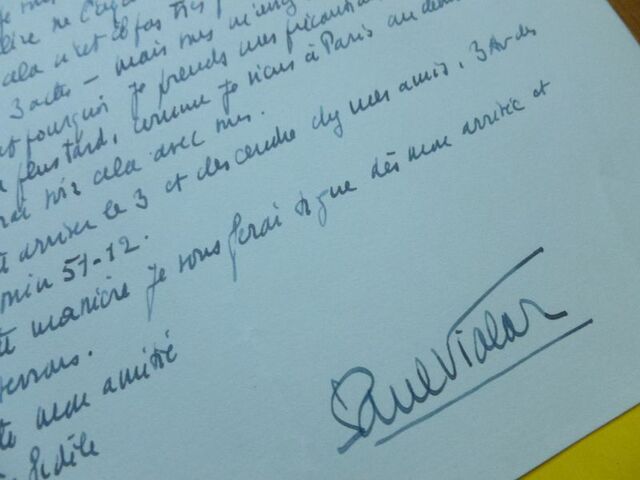 cela n'est il pas très
3 actes – mais vous m'
pourquoi je prends mes précautions
plus tard, comme je viens à Paris au début
voir cela avec vous.
arriver le 3 et descendre chez mes amis, 3 Av des
51-12.
manière je vous ferai signe dès mon arrivée et
verrons.
mon amitié
fidèle
Paul Vialar